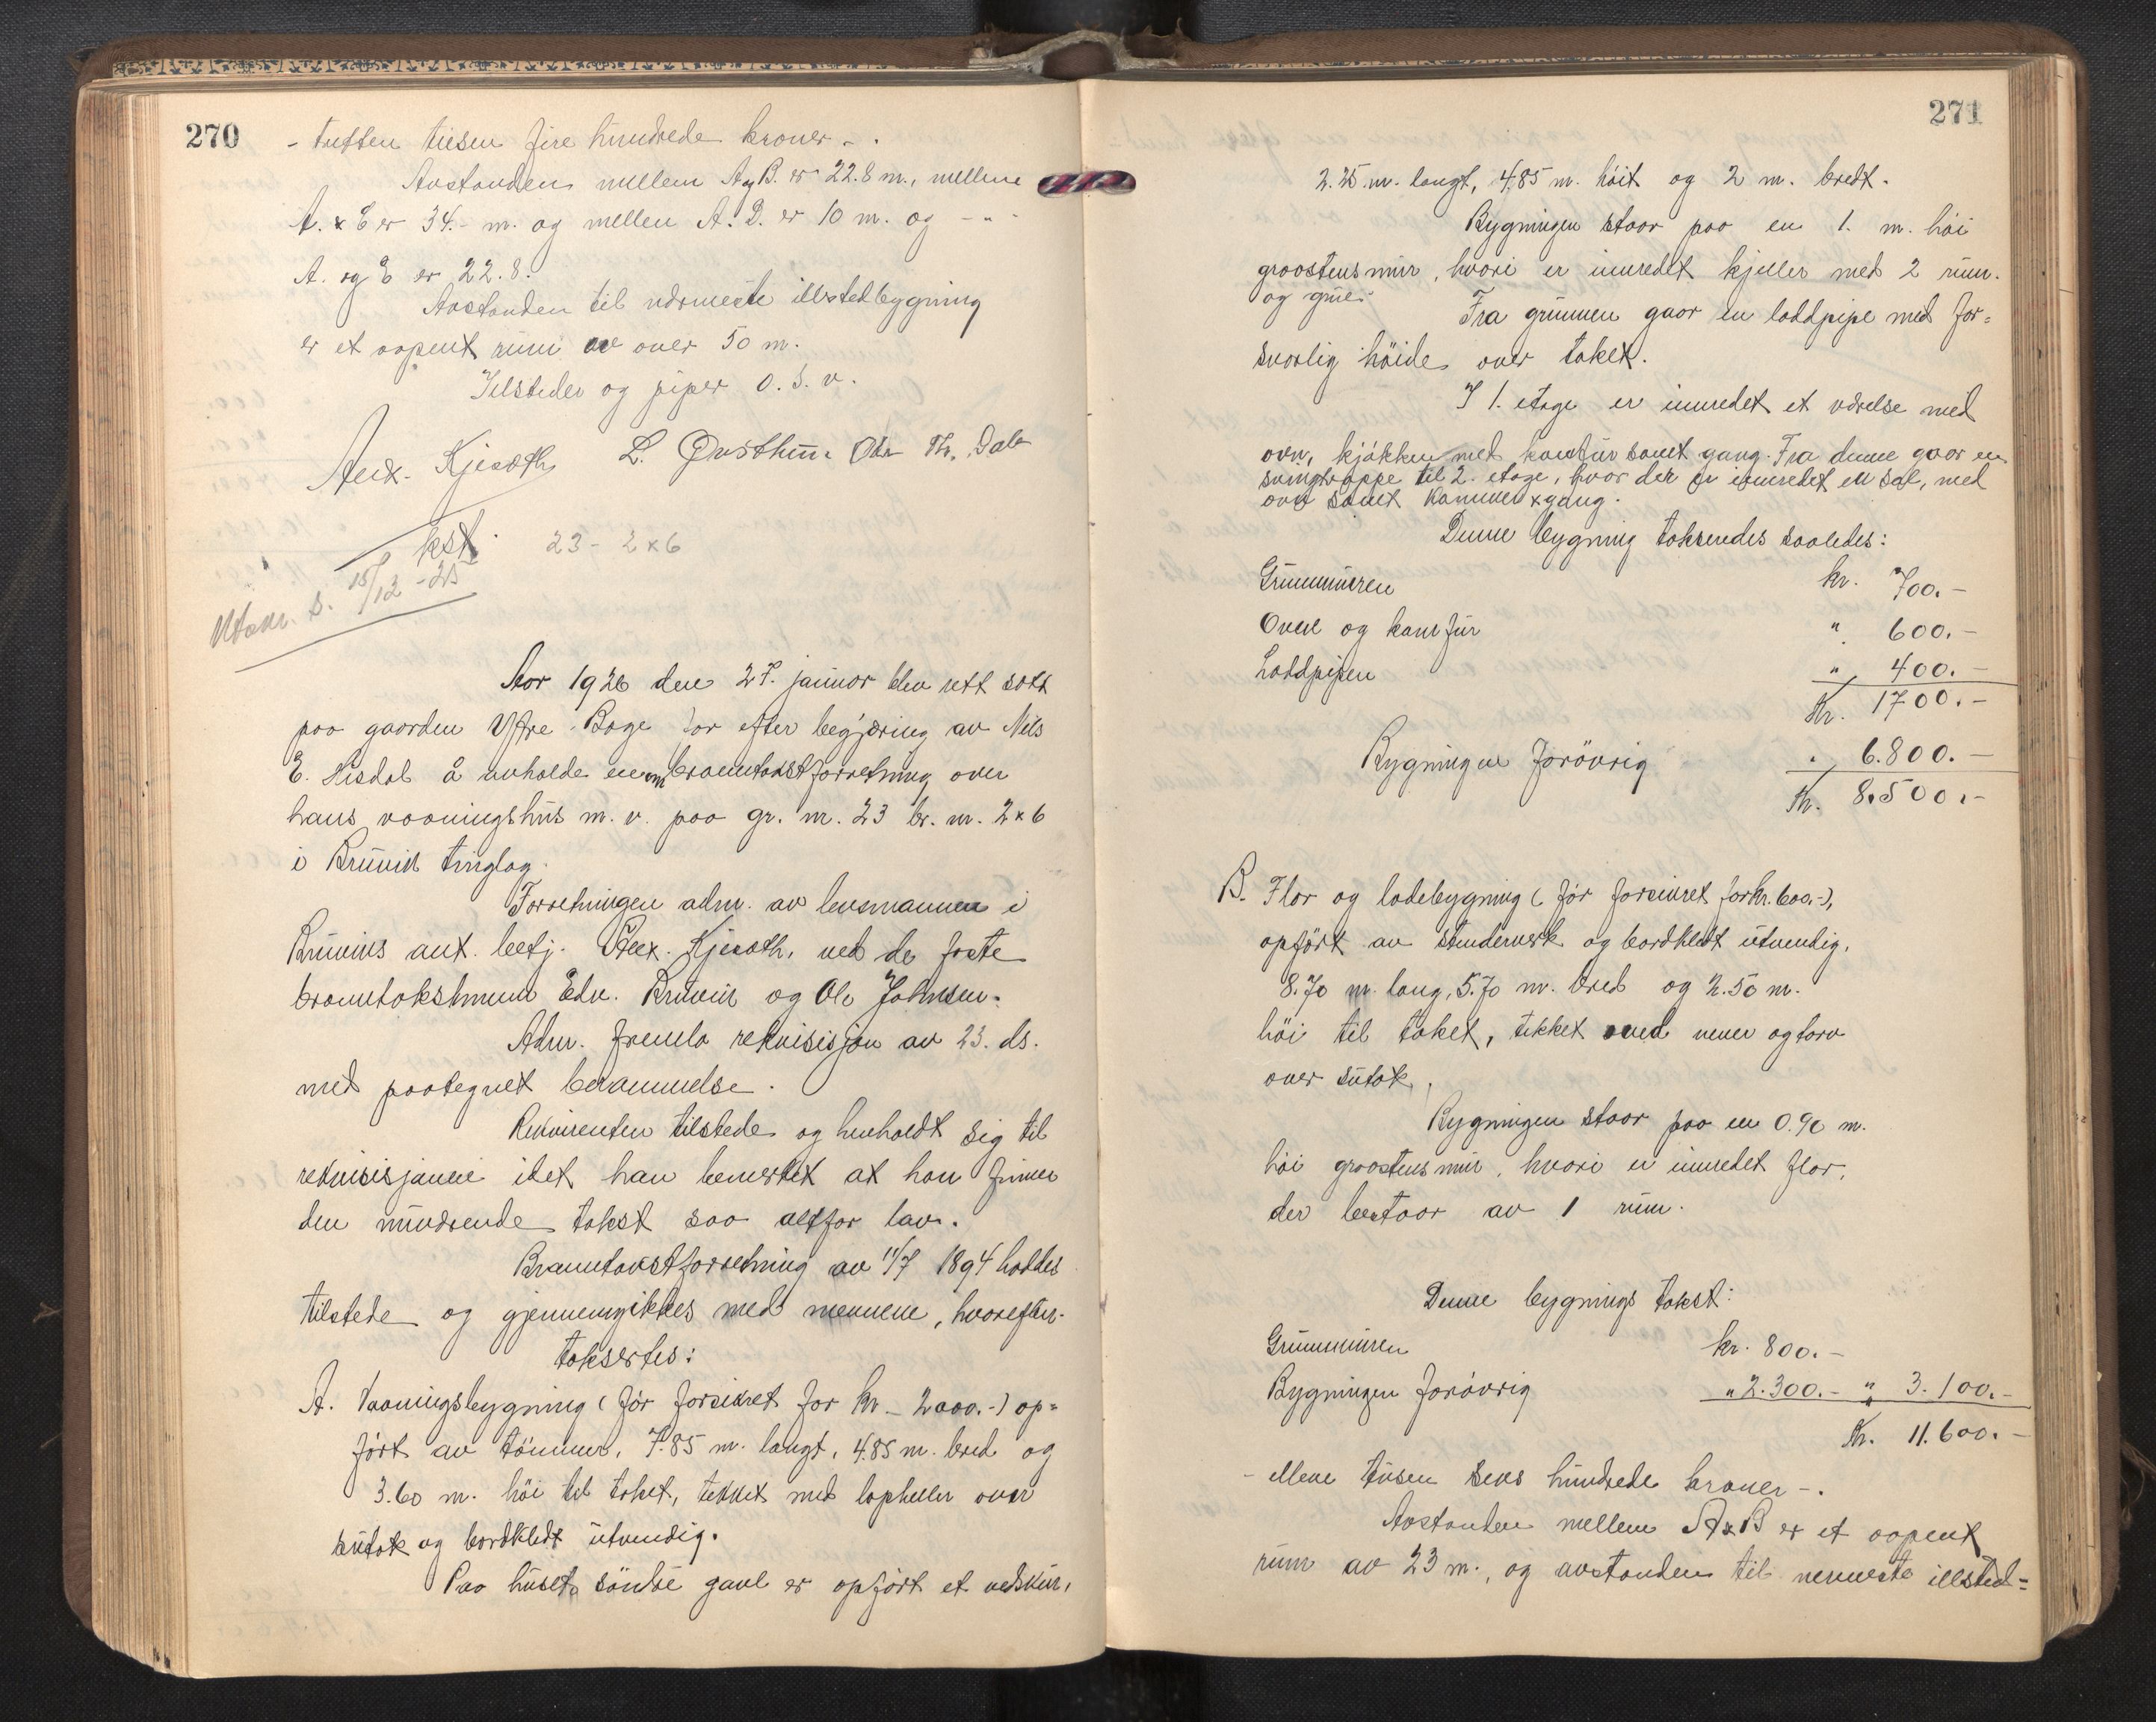 270
- tretten tusen fire hundrede kroner - .
Avstanden mellem A og B. er 22.8 m., mellem
A. & C er 34.- m. og mellem A. D. er 10 m. og - " -
A. og E er 22.8.
Avstanden til nærmeste illstedbygning
er et aapent rum av over 50 m.
Ilsteder og piper o. s. v.
Alex. Kjesoth L. Ole Th. Dale
kst. 23 - 2 x 6
Utskr. s. 15/12 - 25
Aar 1926 den 27. januar blev rett satt
paa gaarden Yttre Boge for efter begjæring av Nils
E. Hisdal å avholde en ombranntakstforretning over
hans vaaningshus m. v. paa gr. nr. 23 br. nr. 2 x 6
i Bruvik tinglag.
Forretningen adm. av lensmannen i
Bruviks aut. betj. Alex. Kjesoth, ved de faste
branntakstmenn Edv. Bruvik og Ole Johnsen.
Adm. fremla rekvisisjon av 23. ds.
med paategnet berammelse.
Rekvirenten tilstede og henholdt sig til
rekvisisjonen idet han bemerket at han finner
den nuværende takst saa altfor lav.
Branntakstforretning av 11/7 1894 haddes
tilstede og gjennemgikkes med mennene, hvorefter
taksertes:
A. Vaaningsbygning (før forsikret for kr. 2000.-) op=
ført av tømmer, 7.85 m. langt, 4.85 m. bred og
3.60 m. høi til taket, tekket med lapheller over
sutak og bordkledt utvendig.
Paa husets søndre gavl er opført et vedskur,
271
2.25 m. langt, 4.85 m. høit og 2 m. bredt.
Bygningen staar paa en 1. m. høi
graastensmur, hvori er innredet kjeller med 2 rum.
og grue. Fra grunnen gaar en laddpipe med for=
svarlig høide over taket.
I 1. etage er innredet et værelse med
ovn, kjøkken med komfur samt gang. Fra denne gaar en
svingtrappe til 2. etage, hvor der er innredet en sal, med
ovn samt kammer x gang.
Denne bygning takseredes saaledes:
Grunnmuren kr. 700.-
Ovne og komfur " 600.-
Laddpipen " 400.-
Kr. 1700.-
Bygningen forøvrig " 6.800.-
Kr. 8.500.-
B. Flor og ladebygning (før forsikret for kr. 600.-),
opført av stenderverk og bordkledt utvendig,
8.70 m. lang, 5.70 m. bred og 2.50 m.
høi til taket, tekket med never og torv
over sutak.
Bygningen staar paa en 0.90 m.
høi graastensmur, hvori er innredet flor,
der bestaar av 1 rum.
Denne bygnings takst:
Grunnmuren kr. 800.-
Bygningen forøvrig " 2.300.- " 3.100.-
Kr. 11.600.-
- elleve tusen seks hundrede kroner - .
Avstanden mellem A x B er et aapent
rum av 23 m., og avstanden til nermeste illsted=